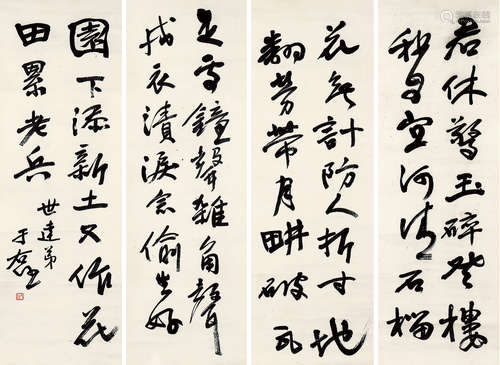 君休驚玉碎登樓
河清石榴
花無計防人折寸地
翻勞帶月耕破瓦
鐘聲雜角聲
衣漬淚念偷生好
園下添新土又作花
田累老兵
世達弟
于右任